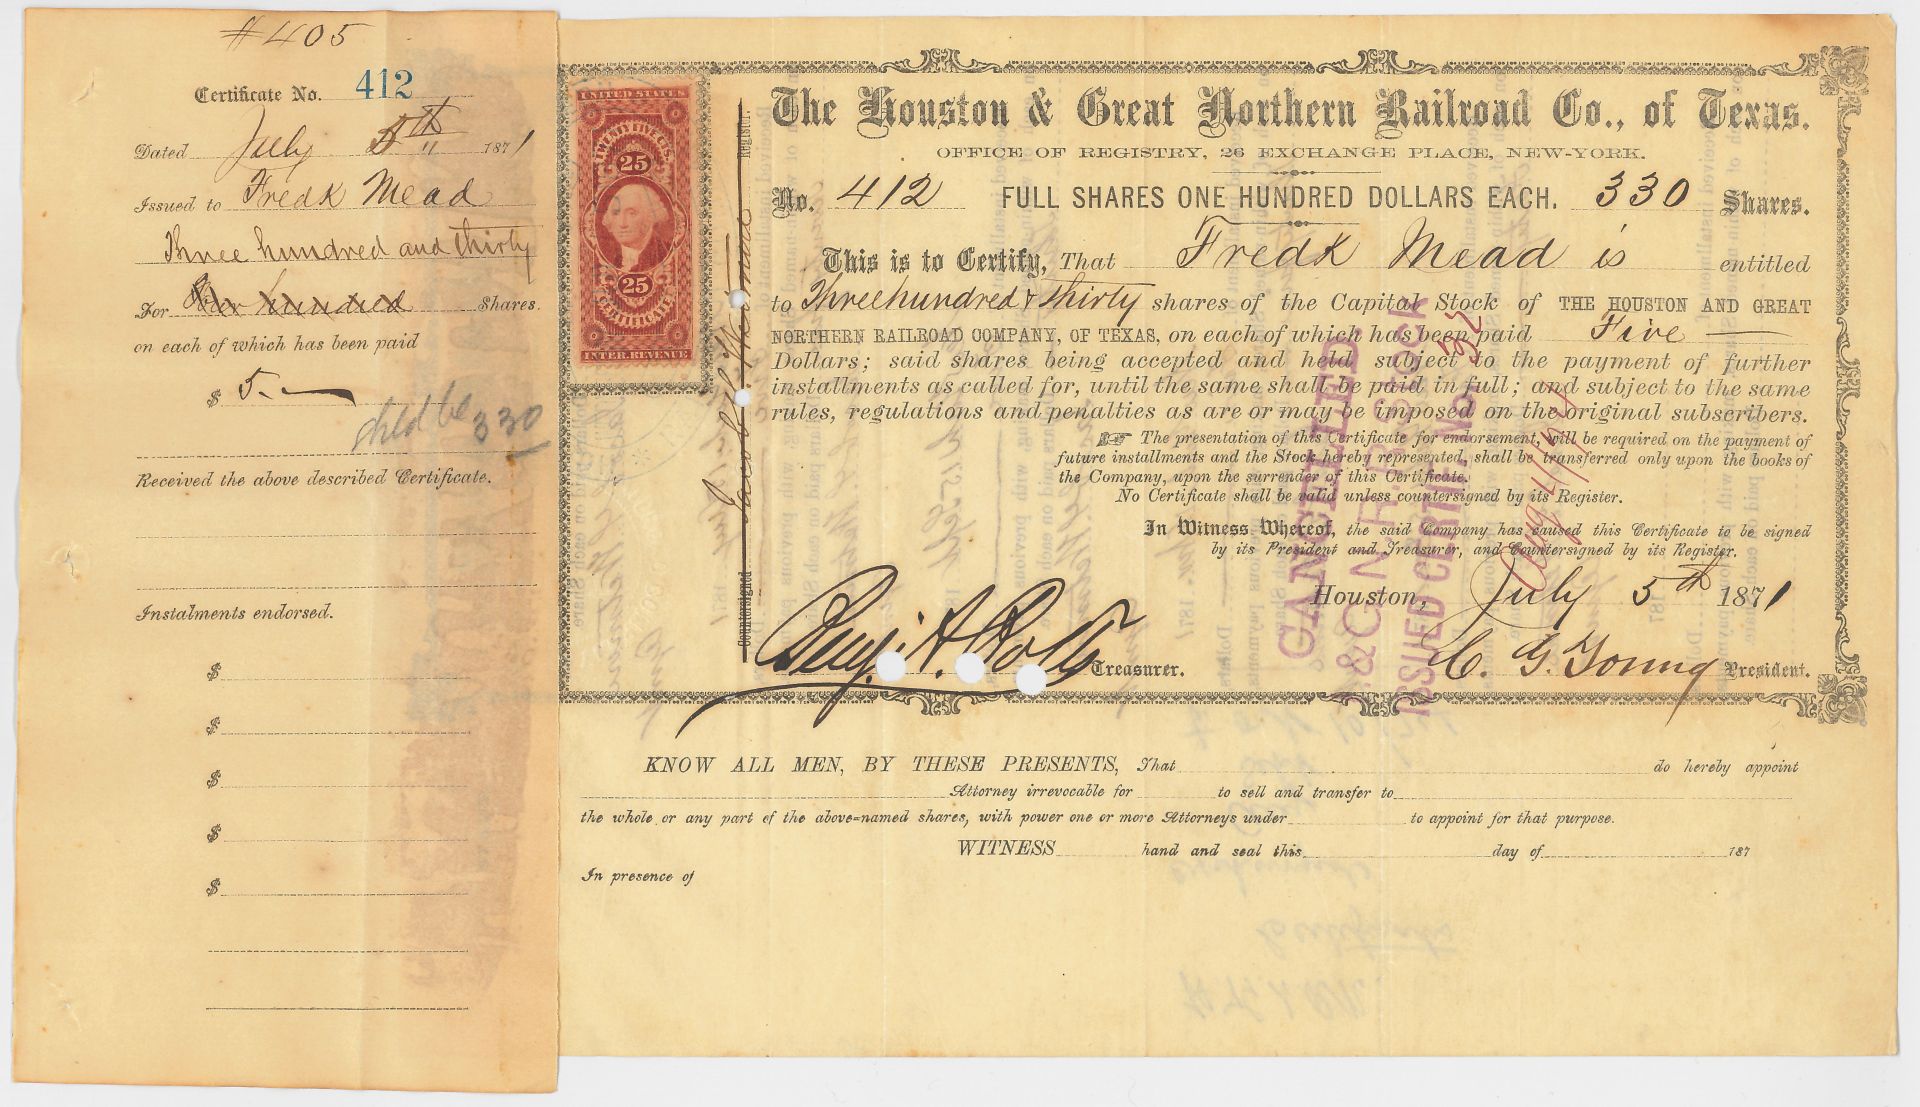 # 405
Certificate No. 412
Dated July 5th " 1871
Issued to Fredk Mead
Three hundred and thirty
For hundred Shares.
on each of which has been paid
$ 5.
shld be 330
Received the above described Certificate.
Instalments endorsed.
$
$
$
$
$
UNITED STATES
TWENTY FIVE CTS.
25
25
CERTIFICATE
INTER. REVENUE
Countersigned Register.
The Houston & Great Northern Railroad Co., of Texas.
OFFICE OF REGISTRY, 26 EXCHANGE PLACE, NEW-YORK.
No. 412 FULL SHARES ONE HUNDRED DOLLARS EACH. 330 Shares.
This is to Certify, That Fredk Mead is entitled
to Three hundred & thirty shares of the Capital Stock of THE HOUSTON AND GREAT
NORTHERN RAILROAD COMPANY, OF TEXAS, on each of which has been paid Five
Dollars; said shares being accepted and held subject to the payment of further
installments as called for, until the same shall be paid in full; and subject to the same
rules, regulations and penalties as are or may be imposed on the original subscribers.
☞ The presentation of this Certificate for endorsement, will be required on the payment of
future installments and the Stock hereby represented, shall be transferred only upon the books of
the Company, upon the surrender of this Certificate.
No Certificate shall be valid unless countersigned by its Register.
In Witness Whereof, the said Company has caused this Certificate to be signed
by its President and Treasurer, and Countersigned by its Register.
Houston, July 5th 1871
Benj. A. Botts Treasurer. C. G. Young President.
CANCELLED
I. & G. N. R. R. STOCK
ISSUED CERTIF. No.
KNOW ALL MEN, BY THESE PRESENTS, That do hereby appoint
Attorney irrevocable for to sell and transfer to
the whole or any part of the above=named shares, with power one or more Attorneys under to appoint for that purpose.
WITNESS hand and seal this day of 187
In presence of